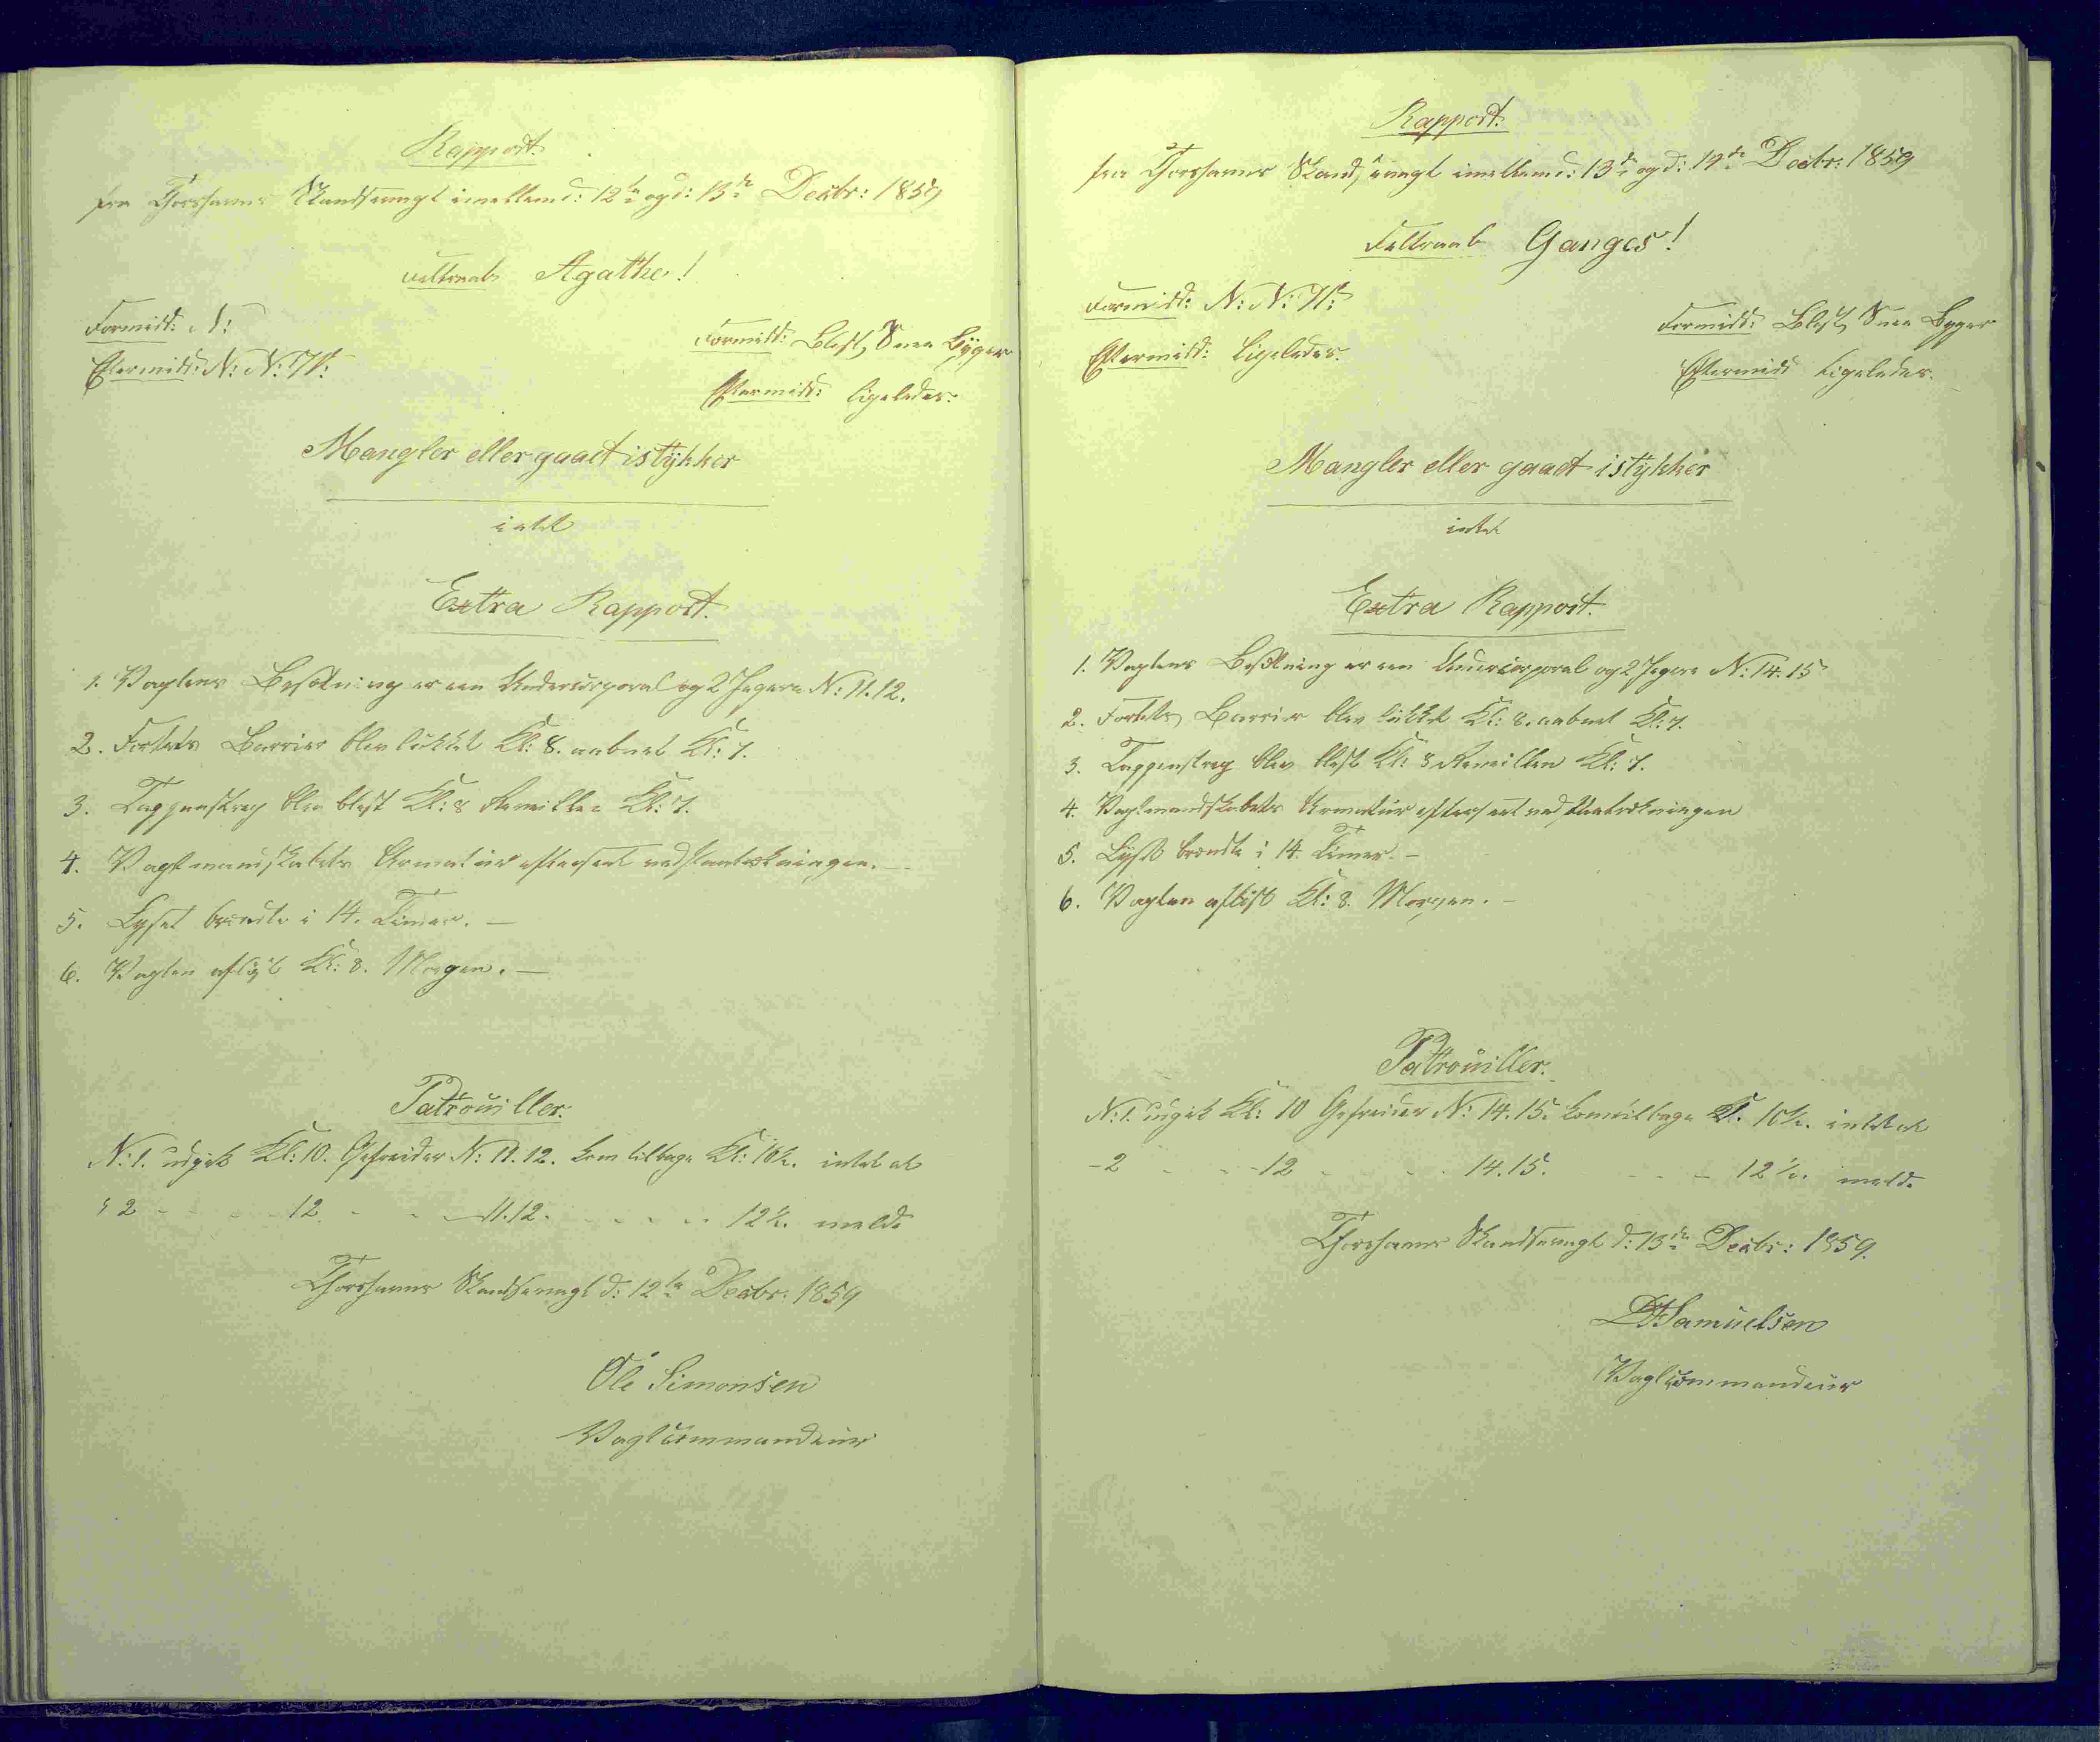 Rapport.
fra Thorshavns Skandsevagt imellem d: 12te og d: 13de Decbr: 1859
Feltraab Agathe!
Formidd: N:
Eftermidd: N: N: W:
Formidd: Blæst, Snee Byger
Eftermidd: ligeledes.
Mangler eller gaaet istykker
intet
Extra Rapport.
1. Vagtens Besætning er een Undercorporal og 2 Jægere N: 11. 12.
2. Fortets Barrier blev lukket Kl: 8. aabnet Kl: 7.
3. Tappenstreg blev blæst Kl: 8 Reveillen Kl: 7.
4. Vagtmandskabets Armatur efterseet ved Fratrædningen. —
5. Lyset brændte i 14. Timer. —
6. Vagten afløst Kl: 8. Morgen. —
Patrouiller.
N: 1. udgik Kl: 10. Gefreider N: 11. 12. kom tilbage Kl: 10½. intet at
" 2 - - - 12 - - - 11. 12. - - - - 12½. melde
Thorshavns Skandsevagt d: 12te Decbr: 1859
Ole Simonsen
Vagtcommandeur
Rapport.
fra Thorshavns Skandsevagt imellem d: 13de og d: 14de Decbr: 1859
Feltraab Ganges!
Formidd: N: N: W:
Eftermidd: ligeledes.
Formidd: Blæst, Snee Byger
Eftermidd ligeledes.
Mangler eller gaaet istykker
intet
Extra Rapport.
1. Vagtens Besætning er een Undercorporal og 2 Jægere N: 14. 15
2. Fortets Barrier blev lukket Kl: 8. aabnet Kl: 7.
3. Tappenstreg blev blæst Kl: 8 Reveillen Kl: 7.
4. Vagtmandskabets Armatur efterseet ved Fratrædningen
5. Lyset brændte i 14. Timer. —
6. Vagten afløst Kl: 8. Morgen. —
Patrouiller.
N: 1. udgik Kl: 10 Gefreider N: 14. 15. kom tilbage Kl. 10½. intet at
- 2 - - - 12 - - - - 14. 15. - - - 12½. melde
Thorshavns Skandsevagt d: 13de Decbr: 1859.
Samuelsen
Vagtcommandeur